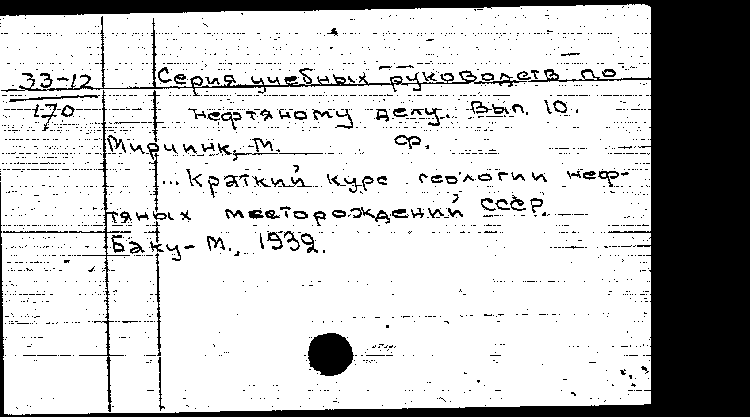 33-12
170
Серия учебных руководств по
нефтяному делу. Вып. 10.
Мирчинк, М. Ф.
... Краткий курс геологии неф-
тяных месторождений СССР.
Баку - М., 1932.